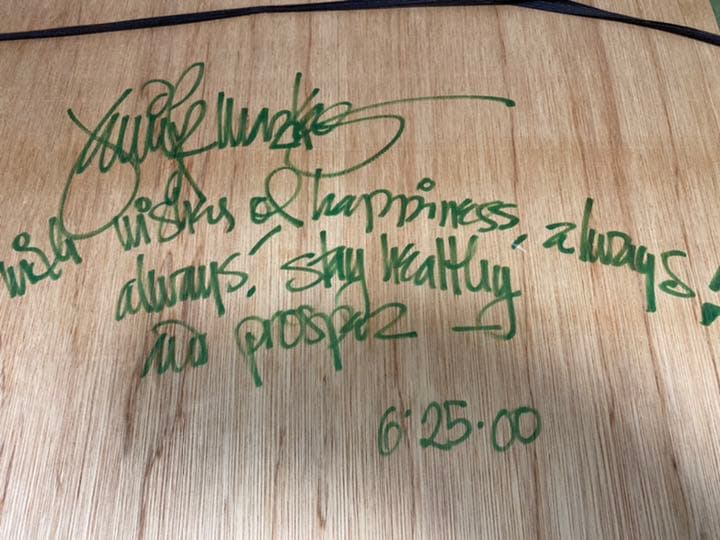 with wishes of happiness, always!
always! stay healthy
and prosper
6·25·00